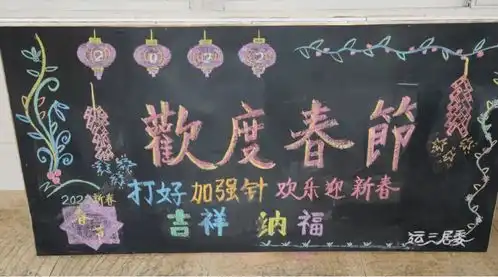 2022
歡度春節
打好加强针 欢乐迎新春
2022新春
春节
吉祥 纳福
运三居委